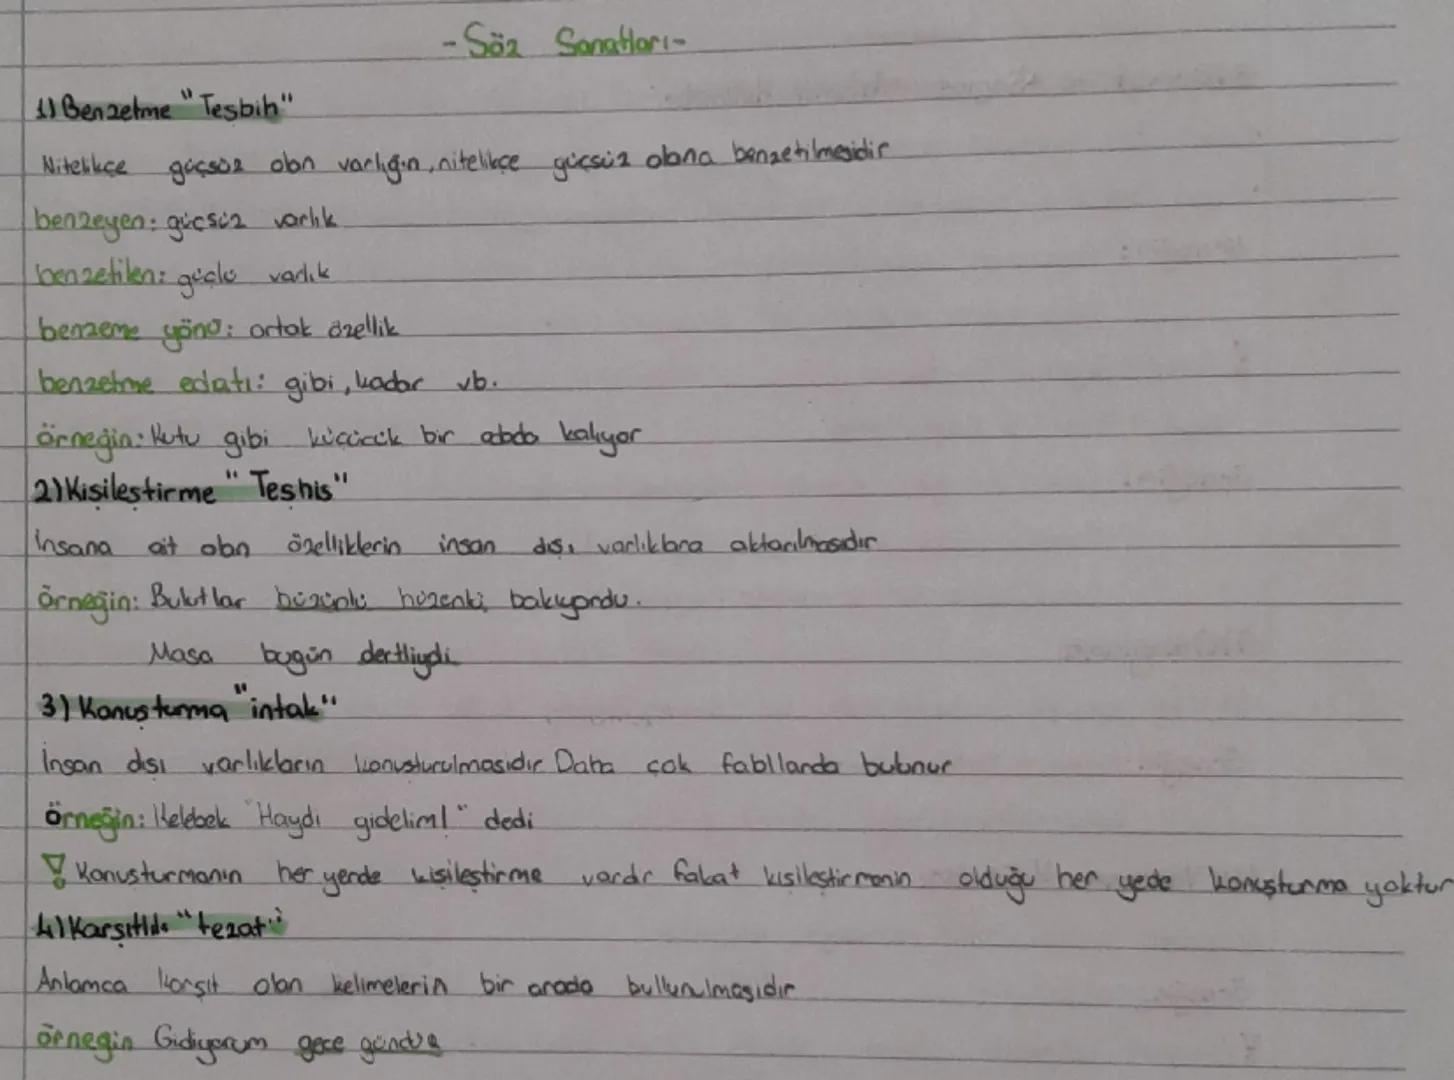 -Söz Sanatları-
1) Benzetme "Teşbih"
Nitelikçe güçsüz olan varlığın, nitelikçe güçsüz olana benzetilmesidir
benzeyen: güçsüz varlık
benzetilen: güçlü varlık
benzeme yönü: ortak özellik
benzetme edatı: gibi, kadar vb.
örneğin: Kutu gibi küçücük bir odada kalıyor
2) Kişileştirme "Teşhis"
İnsana ait olan özelliklerin insan dışı varlıklara aktarılmasıdır
örneğin: Bulutlar bakıyordu.
Masa bugün dertliydi
3) Konuşturma "intak"
İnsan dışı varlıkların konuşturulmasıdır Daha çok fabllarda bulunur
Örneğin: Kelebek "Haydi gidelim!" dedi
! Konuşturmanın her yerde kişileştirme vardır fakat kişileştirmenin olduğu her yede konuşturma yoktur
4) Karşıtlık "tezat"
Anlamca karşıt olan kelimelerin bir arada bullunulmasıdır
örnegin Gidiyorum gece gündüz